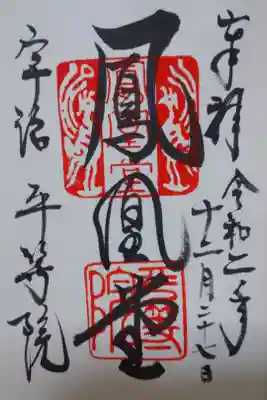 奉拝
令和二年
十二月二十七日
鳳凰堂
宇治 平等院